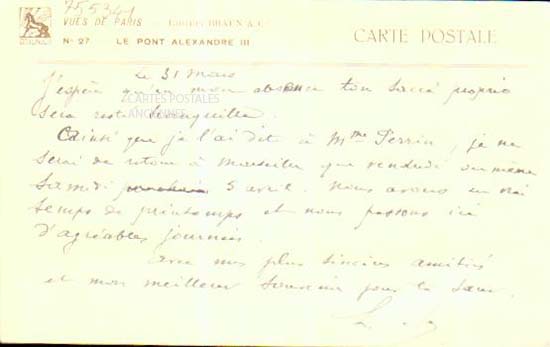 755341
VUES DE PARIS
BRAUN & Cie
CARTE POSTALE
No 27. LE PONT ALEXANDRE III
Le 31 Mars
J'espère qu'en mon absence ton sacré proprio
CARTES POSTALES
ANCIENNES
sera resté tranquille.
Ainsi que je l'ai dit à Mme Perrin, je ne
serai de retour à Marseille que vendredi ou même
samedi 5 avril. Nous avons un vrai
temps de printemps et nous passons ici
d'agréables journées.
avec mes plus sincères amitiés
et mon meilleur souvenir pour ta sœur.